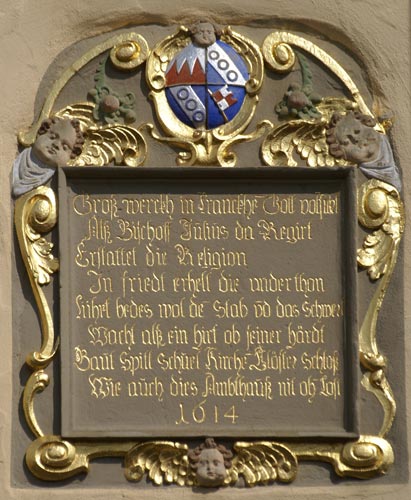 Groß werckh in Franckhē Gott volfuert
Alß Bischoff Julius da Regirt
Erstattet die Religion
In friedt erhelt die underthon
Führt bedes wol dē Stab vnd das Schwert
Wacht alß ein hirt ob seiner härdt
Baut Spitl Schuel Kirchē Clöster Schloß
Wie auch dies Ambthauß nit ohn Cost
1614